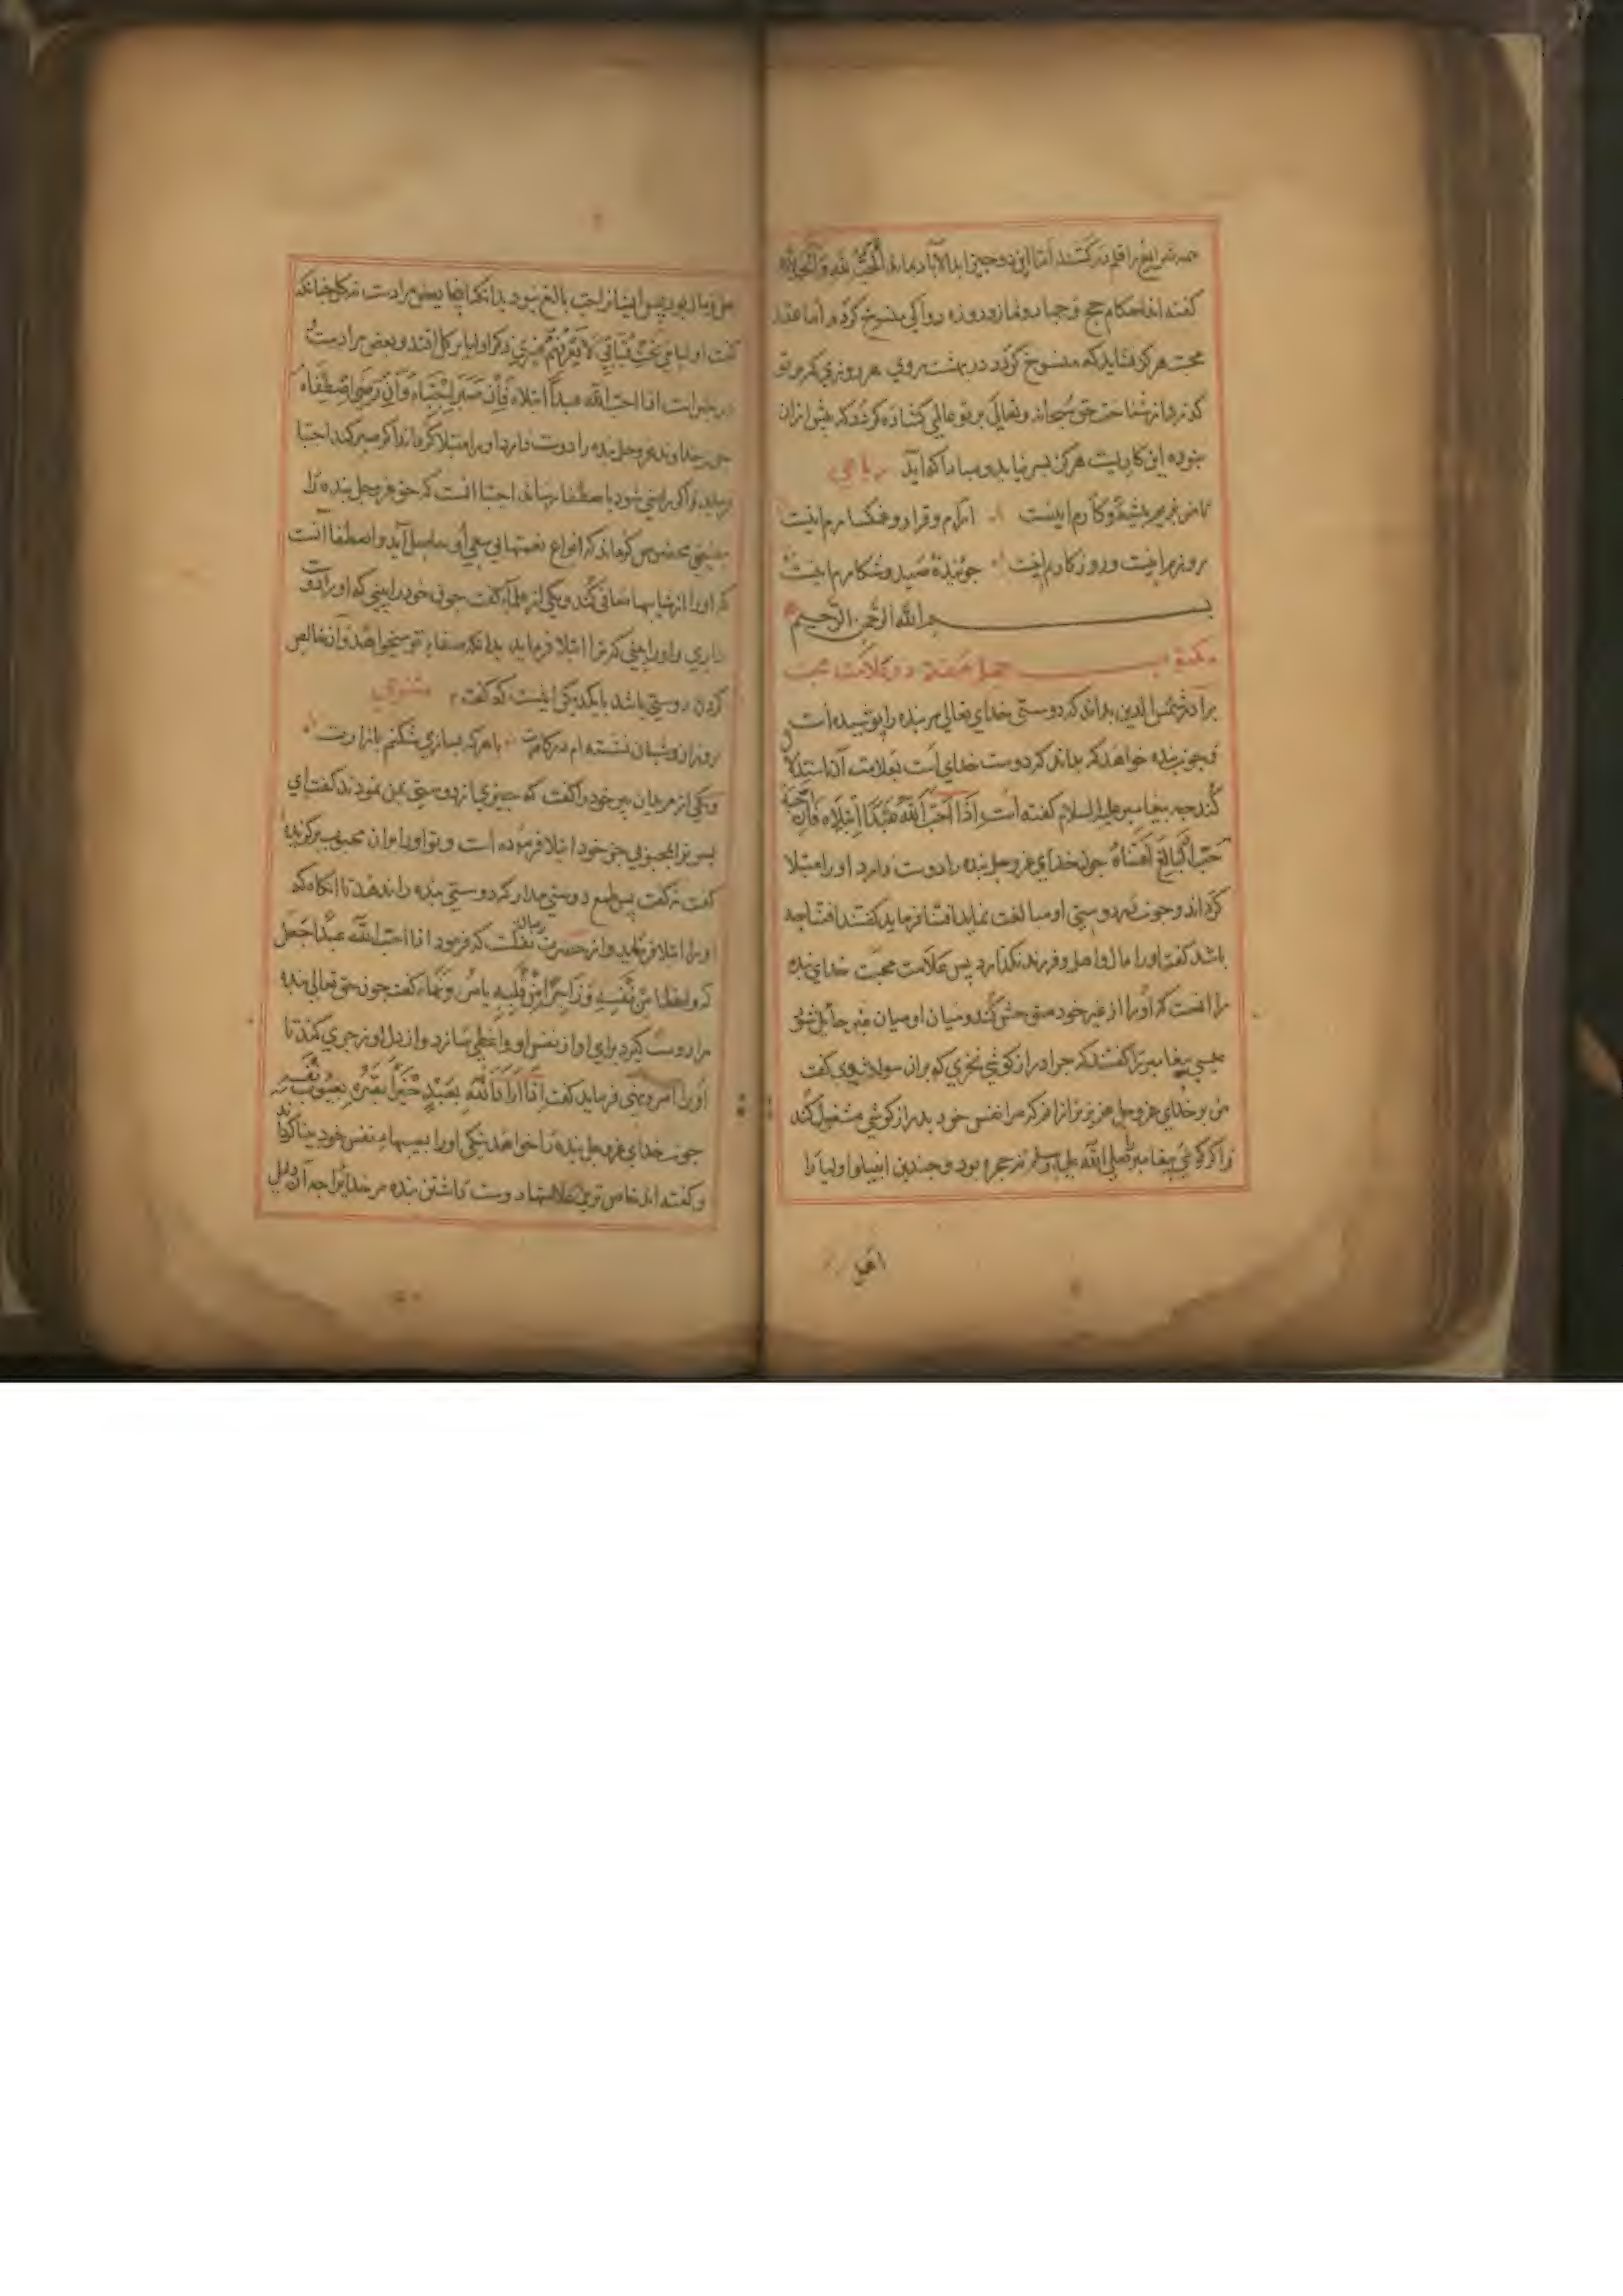 همه شرایع را قلم درکشند اما این دو چیز ابد الآباد بماند الحب لله والحمد لله
کفته اند احکام حج و جهاد و نماز و روزه روا کی منسوخ کردد اما عقد
محبت هرکز نشاید که منسوخ کردد در بهشت روی هر روزی که بر تو
کذرد از شناخت حق سبحانه وتعالی بر تو عالمی کشاده کردد که پیش ازان
نبوده این کاریست هرکز بسر نیاید و مبادا که آید رباعی
تا من بزیم پیشه و کارم اینست آرام و قرار و غمکسارم اینست
روزم اینست و روزکارم اینست جوینده صیدم و شکارم اینست
بسم الله الرحمن الرحیم
مکتوب چهل هفتم در علامت محبت
برادرم شمس الدین بداند که دوستی خدای تعالی مر بنده را پوشیده است
و چون بنده خواهد که بداند که دوست خدای است بعلامت آن استدلال
کند چه پیغامبر علیه السلام کفته است اذا احب الله عبدا ابتلاه فان احبه
حب البالغ اقتناه چون خدای عزوجل بنده را دوست دارد او را مبتلا
کرداند و چون در دوستی او مبالغت نماید اقتنا فرماید کفتند اقتنا چه
باشد کفت او را مال و اهل و فرزند نکذارد پس علامت محبت خدای بنده
را آنست که او را از غیر خود متوحش کند و میان او و میان غیر حائل شود
عیسی پیغامبر را کفتند که چرا دراز کوشی نخری که بران سوار شوی کفت
من بر خدای عزوجل عزیزتر ازانم که مرا نفس خود بدراز کوشی مشغول کند
و اکر کوئی پیغامبر را صلی الله علیه وسلم نه حجره بود و چندین انبیا و اولیا را
اهل
اهل و مال بود پس ایشان را حب بالغ نبود بدانکه اینجا بعض مرادست نه کل چنانکه
کفت اولیائی تحت قبائی لا یعرفهم غیری ذکر اولیا بر کل افتد و بعض مرادست
در خبرست اذا احب الله عبدا ابتلاه فان صبر اجتباه وان رضی اصطفاه
چون خداوند عزوجل بنده را دوست دارد او را مبتلا کرداند اکر صبر کند اجتبا
فرماید و اکر راضی شود باصطفا رساند اجتبا آنست که حق عزوجل بنده را
بفیضی مخصوص کرداند که انواع نعمتها بی سعی او حاصل آید و اصطفا آنست
که او را از شایبها صافی کند و یکی از علما کفت چون خود را بینی که او را دوست
داری و او را بینی که ترا ابتلا فرماید بدانکه صفاء تو میخواهد و آن خالص
کردن دوستی باشد با یکدیکر اینست که کفت مثنوی
روزان و شبان نشسته ام در کارت با هرکه بسازی شکنم بازارت
و یکی از مریدان پیر خود را کفت که چیزی از دوستی بمن نمودند کفت ای
پسر ترا بمحبوبی جز خود ابتلا فرموده است و تو او را بران محبوب برکزیدهٔ
کفت نه کفت پس طمع دوستی مدار که دوستی بنده را ندهد تا آنکاه که
او را ابتلا فرماید و از حضرت رسالت نقلست که فرمود اذا احب الله عبدا جعل
له واعظا من نفسه وزاجرا من قلبه یامره وینهاه کفت چون حق تعالی بنده
را دوست کیرد برای او از نفس او واعظی سازد و از دل او زجری کند تا
او را امر و نهی فرماید کفت اذا اراد الله بعبد خیرا بصره بعیوب نفسه
چون خدای عزوجل بنده را خواهد نیکی او را بعیبهاء نفس خود بینا کرداند
و کفته اند خاص ترین علامتها دوست داشتن بنده مر خدا را چه آن دلیل